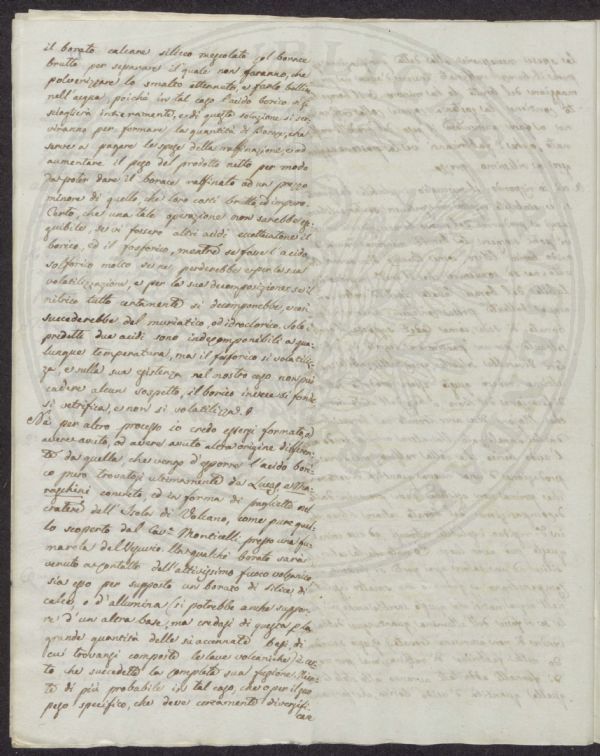 il borato calcare siliceo mescolato col borace
brutto per separare il quale non faranno, che
polverizzare lo smalto ottenuto, e farlo bollire
nell'acqua, poichè in tal caso l'acido borico si
scioglierà intieramente, e di questa soluzione si ser-
viranno per formare la quantità di Borace, che
serve a pagare le spese della raffinazione, e ad
aumentare il peso del prodotto netto per modo
da poter dare il borace raffinato ad un prezzo
minore di quello, che loro costi brutto, ed impuro.
Certo, che una tale operazione non sarebbe es-
quibile, se vi fossero altri acidi eccettuatone il
borico, ed il fosforico, mentre se fosse l'acido
solforico molto se ne perderebbe e per la sua
volatilizzazione, e per la sua decomposizione: se il
nitrico tutto certamente si decomporrebbe, e così
succederebbe del muriatico, od idroclorico. Solo i
predetti due acidi sono indecomponibili a qua-
lunque temperatura, ma il fosforico si volatiliz-
za, e sulla sua esistenza nel nostro caso non può
cadere alcun sospetto, il borico invece si fonde
si vetrifica, e non si volatilizza.
Nè per altro processo io credo essersi formato, od
avere avuto, od avere avuto altra origine differen-
te da quella, che vengo d'esporre l'acido bori-
co puro trovatosi ultimamente da Lucas e Ma-
raschini concreto, ed in forma di pagliette nel
cratere dell'Isola di Volcano, come pure quel-
lo scoperto dal Cav.e Monticelli presso una fu-
marola del Vesuvio. Un qualche borato sarà
venuto a contatto dell'attivissimo fuoco volcanico,
sia esso per supposto un borato di silice, di
calce, o d'allumina (si potrebbe anche suppor-
re d'un altra base, ma credasi di questa p la
grande quantità delle siaccennate basi, di
cui trovansi composte le lave volcaniche) è cer-
to, che succedette la completa sua fusione. Nien-
te di più probabile in tal caso, che o per il suo
peso specifico, che deve certamente diversifi-
care